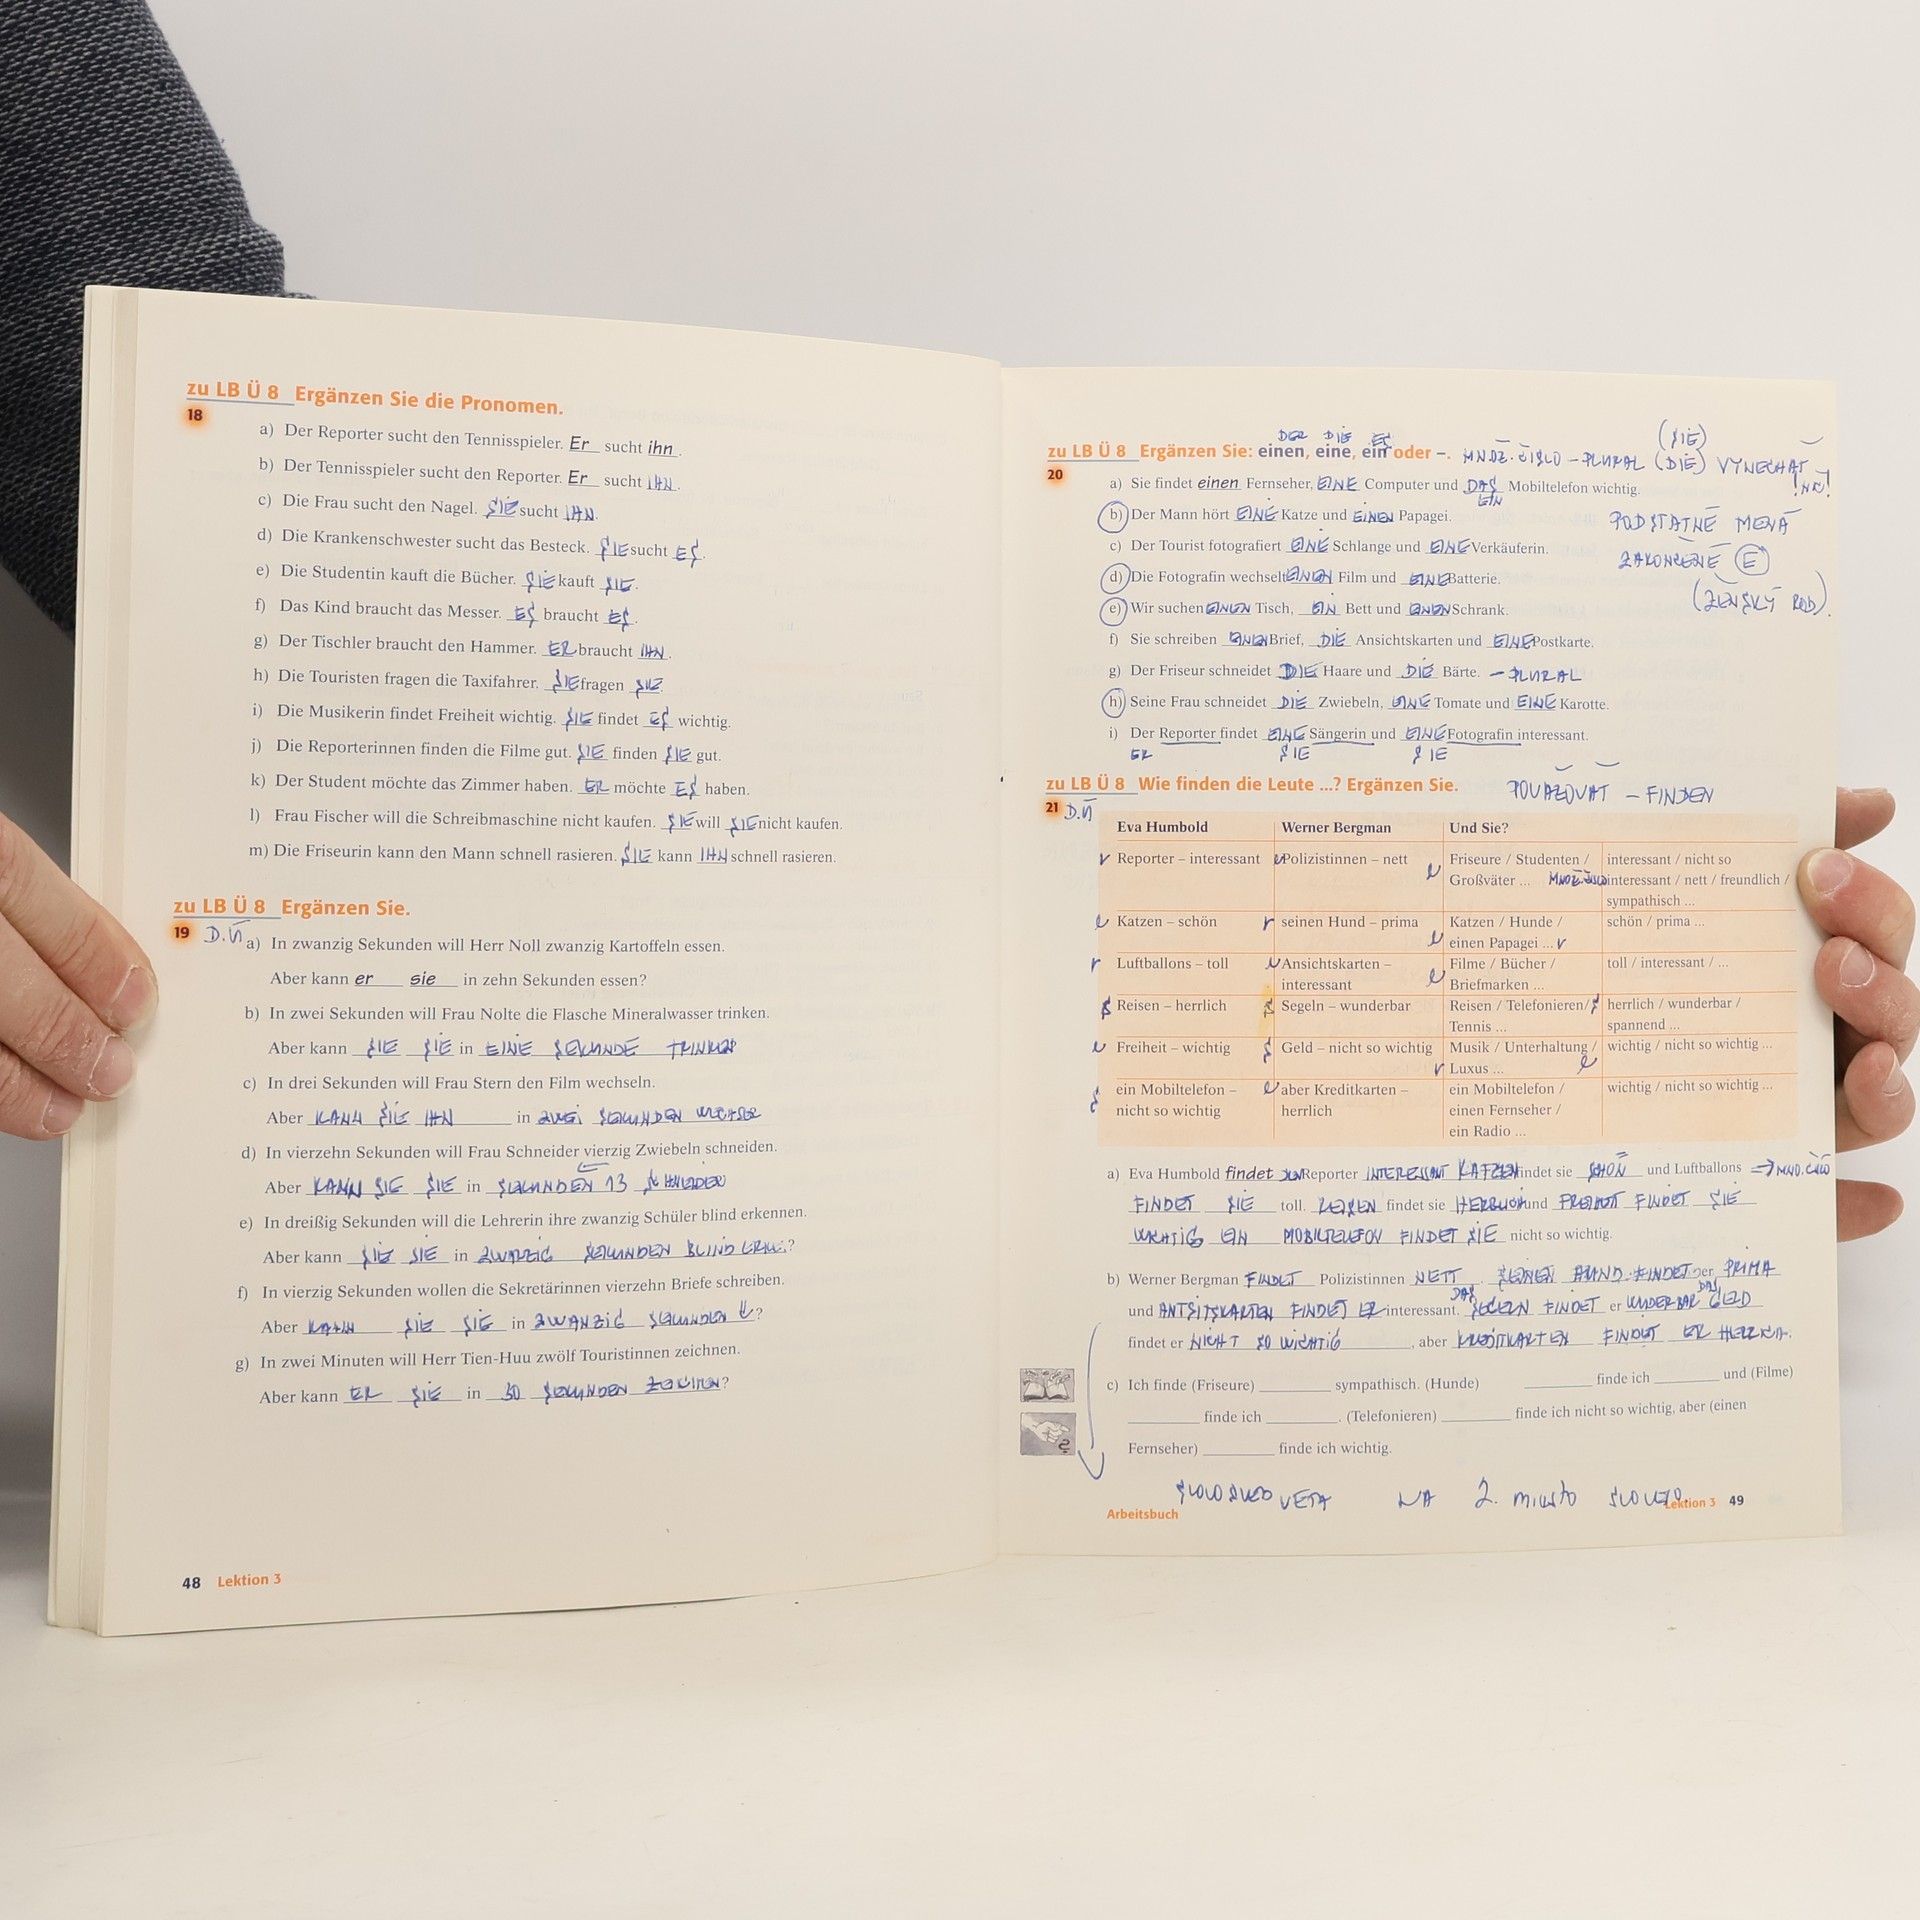 zu LB Ü 8 Ergänzen Sie die Pronomen.
18
a) Der Reporter sucht den Tennisspieler. Er sucht ihn.
b) Der Tennisspieler sucht den Reporter. Er sucht IHN.
c) Die Frau sucht den Nagel. SIE sucht IHN.
d) Die Krankenschwester sucht das Besteck. SIE sucht ES.
e) Die Studentin kauft die Bücher. SIE kauft SIE.
f) Das Kind braucht das Messer. ES braucht ES.
g) Der Tischler braucht den Hammer. ER braucht IHN.
h) Die Touristen fragen die Taxifahrer. SIE fragen SIE.
i) Die Musikerin findet Freiheit wichtig. SIE findet ES wichtig.
j) Die Reporterinnen finden die Filme gut. SIE finden SIE gut.
k) Der Student möchte das Zimmer haben. ER möchte ES haben.
l) Frau Fischer will die Schreibmaschine nicht kaufen. SIE will SIE nicht kaufen.
m) Die Friseurin kann den Mann schnell rasieren. SIE kann IHN schnell rasieren.
zu LB Ü 8 Ergänzen Sie.
19 D.Ú
a) In zwanzig Sekunden will Herr Noll zwanzig Kartoffeln essen.
Aber kann er sie in zehn Sekunden essen?
b) In zwei Sekunden will Frau Nolte die Flasche Mineralwasser trinken.
Aber kann SIE SIE in EINE SEKUNDE TRINKEN
c) In drei Sekunden will Frau Stern den Film wechseln.
Aber KANN SIE IHN in ZWEI SEKUNDEN
d) In vierzehn Sekunden will Frau Schneider vierzig Zwiebeln schneiden.
Aber KANN SIE SIE in SEKUNDEN 13
e) In dreißig Sekunden will die Lehrerin ihre zwanzig Schüler blind erkennen.
Aber kann SIE SIE in ZWANZIG SEKUNDEN BLIND ?
f) In vierzig Sekunden wollen die Sekretärinnen vierzehn Briefe schreiben.
Aber KANN SIE SIE in ZWANZIG SEKUNDEN ?
g) In zwei Minuten will Herr Tien-Huu zwölf Touristinnen zeichnen.
Aber kann ER SIE in 30 SEKUNDEN ?
48 Lektion 3
DER DIE ES (SIE)
zu LB Ü 8 Ergänzen Sie: einen, eine, ein oder –. MNOŽ. ČISLO – PLURAL (DIE) VYNECHAŤ
20
a) Sie findet einen Fernseher, EINE Computer und DAS Mobiltelefon wichtig.
EIN
b) Der Mann hört EINE Katze und EINEN Papagei. PODSTATNÉ MENÁ
c) Der Tourist fotografiert EINE Schlange und EINE Verkäuferin. ZAKONČENÉ E
d) Die Fotografin wechselt EINEN Film und EINE Batterie.
(ŽENSKÝ ROD).
e) Wir suchen EINEN Tisch, EIN Bett und EINEN Schrank.
f) Sie schreiben EINEN Brief, DIE Ansichtskarten und EINE Postkarte.
g) Der Friseur schneidet DIE Haare und DIE Bärte. – PLURAL
h) Seine Frau schneidet DIE Zwiebeln, EINE Tomate und EINE Karotte.
i) Der Reporter findet EINE Sängerin und EINE Fotografin interessant.
ER SIE SIE
zu LB Ü 8 Wie finden die Leute ...? Ergänzen Sie. POVAŽOVAŤ – FINDEN
21 D.Ú
Eva Humbold Werner Bergman Und Sie?
r Reporter – interessant e Polizistinnen – nett Friseure / Studenten / interessant / nicht so
e Großväter ... MNOŽ. ČISLO interessant / nett / freundlich /
sympathisch ...
e Katzen – schön r seinen Hund – prima Katzen / Hunde / schön / prima ...
e einen Papagei ... r
r Luftballons – toll e Ansichtskarten – Filme / Bücher / toll / interessant / ...
interessant e Briefmarken ...
s Reisen – herrlich s Segeln – wunderbar Reisen / Telefonieren / s herrlich / wunderbar /
Tennis ... spannend ...
e Freiheit – wichtig s Geld – nicht so wichtig Musik / Unterhaltung / wichtig / nicht so wichtig ...
r Luxus ... e
s ein Mobiltelefon – e aber Kreditkarten – ein Mobiltelefon / wichtig / nicht so wichtig ...
nicht so wichtig herrlich einen Fernseher /
ein Radio ...
a) Eva Humbold findet DEN Reporter INTERESSANT KATZEN findet sie SCHÖN und Luftballons → MNO. ČISLO
FINDET SIE toll. REISEN findet sie HERRLICH und FREIHEIT FINDET SIE
WICHTIG EIN MOBILTELEFON FINDET SIE nicht so wichtig.
b) Werner Bergman FINDET Polizistinnen NETT. SEINEN HUND FINDET er PRIMA
DAS DAS
und ANTSITSKARTEN FINDET ER interessant. SEGELN FINDET er WUNDERBAR GELD
findet er NICHT SO WICHTIG, aber KREDITKARTEN FINDET ER
c) Ich finde (Friseure) ________ sympathisch. (Hunde) ________ finde ich ________ und (Filme)
________ finde ich ________. (Telefonieren) ________ finde ich nicht so wichtig, aber (einen
Fernseher) ________ finde ich wichtig.
SLOVOSLED VETA NA 2. miesto SLOVESO
Arbeitsbuch Lektion 3 49